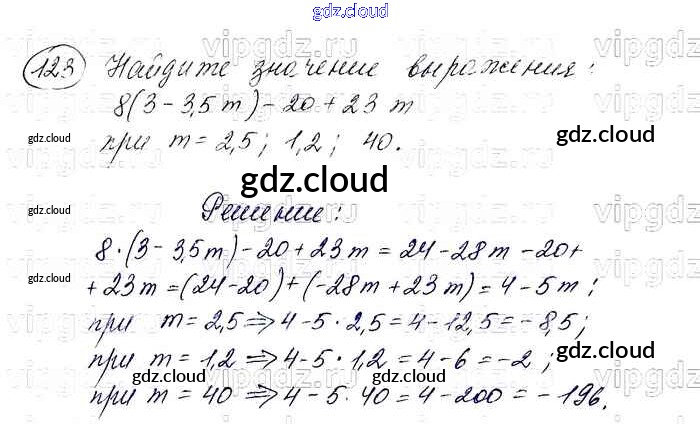 gdz.cloud
123 Найдите значение выражения:
8(3 - 3,5 m) - 20 + 23 m
gdz.cloud
gdz.cloud
при m = 2,5; 1,2; 40.
gdz.cloud
gdz.cloud
Решение:
gdz.cloud
8·(3 - 3,5m) - 20 + 23m = 24 - 28m - 20 +
gdz.cloud
+ 23m = (24 - 20) + (-28m + 23m) = 4 - 5m;
при m = 2,5 ⇒ 4 - 5 · 2,5 = 4 - 12,5 = -8,5;
gdz.cloud
при m = 1,2 ⇒ 4 - 5 · 1,2 = 4 - 6 = -2;
gdz.cloud
gdz.cloud
при m = 40 ⇒ 4 - 5 · 40 = 4 - 200 = -196.